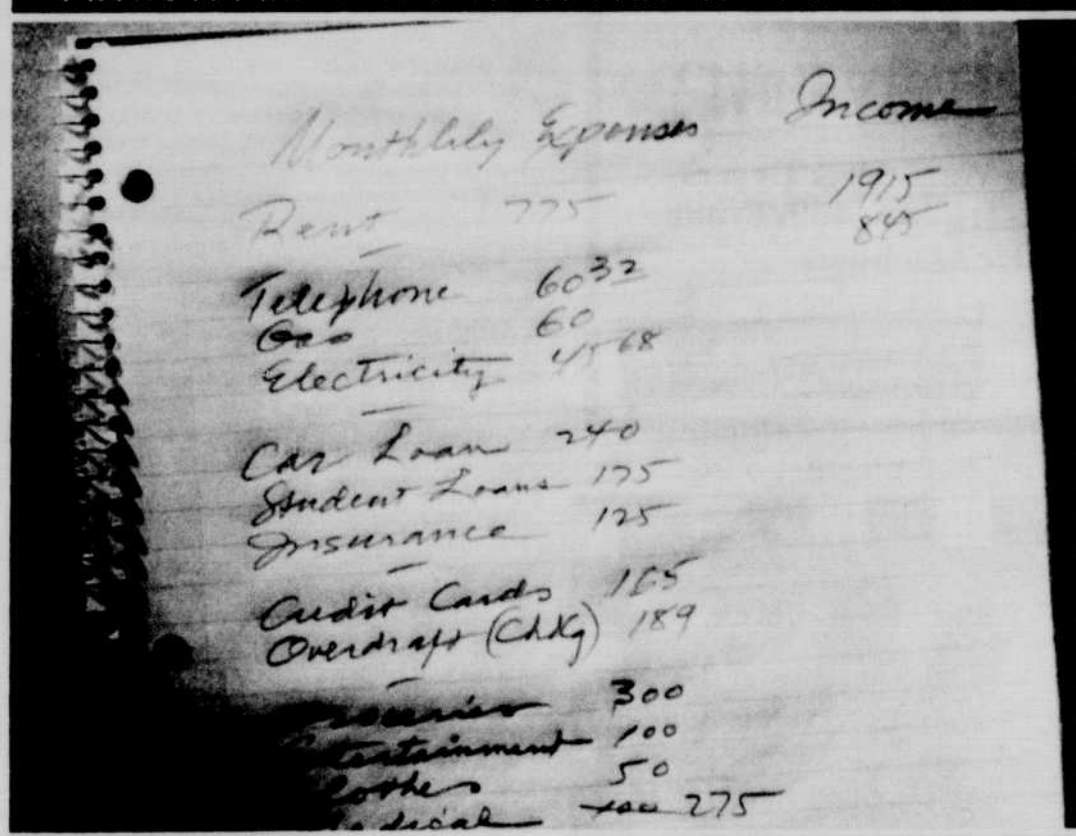 Monthlily Expenses Income
Rent 775 1915
845
Telephone 60 32
Gas 60
Electricity 45 68
Car Loan 240
Student Loans 175
Insurance 125
Credit Cards 165
Overdraft (Chkg) 189
roceries 300
tertainment 100
lothes 50
dical 275